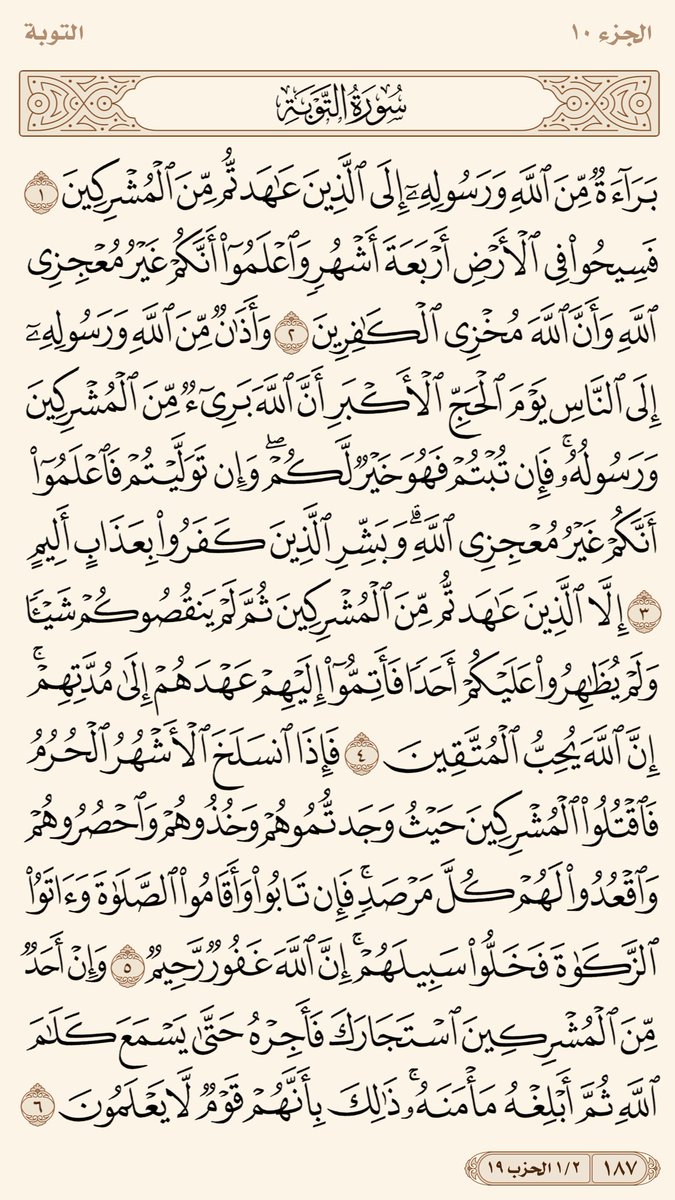 الجزء ١٠
التوبة
سُورَةُ التَّوۡبَةِ
بَرَآءَةٞ مِّنَ ٱللَّهِ وَرَسُولِهِۦٓ إِلَى ٱلَّذِينَ عَٰهَدتُّم مِّنَ ٱلۡمُشۡرِكِينَ ١
فَسِيحُواْ فِي ٱلۡأَرۡضِ أَرۡبَعَةَ أَشۡهُرٖ وَٱعۡلَمُوٓاْ أَنَّكُمۡ غَيۡرُ مُعۡجِزِي
ٱللَّهِ وَأَنَّ ٱللَّهَ مُخۡزِي ٱلۡكَٰفِرِينَ ٢ وَأَذَٰنٞ مِّنَ ٱللَّهِ وَرَسُولِهِۦٓ
إِلَى ٱلنَّاسِ يَوۡمَ ٱلۡحَجِّ ٱلۡأَكۡبَرِ أَنَّ ٱللَّهَ بَرِيٓءٞ مِّنَ ٱلۡمُشۡرِكِينَ
وَرَسُولُهُۥۚ فَإِن تُبۡتُمۡ فَهُوَ خَيۡرٞ لَّكُمۡۖ وَإِن تَوَلَّيۡتُمۡ فَٱعۡلَمُوٓاْ
أَنَّكُمۡ غَيۡرُ مُعۡجِزِي ٱللَّهِۗ وَبَشِّرِ ٱلَّذِينَ كَفَرُواْ بِعَذَابٍ أَلِيمٍ
٣ إِلَّا ٱلَّذِينَ عَٰهَدتُّم مِّنَ ٱلۡمُشۡرِكِينَ ثُمَّ لَمۡ يَنقُصُوكُمۡ شَيۡـٔٗا
وَلَمۡ يُظَٰهِرُواْ عَلَيۡكُمۡ أَحَدٗا فَأَتِمُّوٓاْ إِلَيۡهِمۡ عَهۡدَهُمۡ إِلَىٰ مُدَّتِهِمۡۚ
إِنَّ ٱللَّهَ يُحِبُّ ٱلۡمُتَّقِينَ ٤ فَإِذَا ٱنسَلَخَ ٱلۡأَشۡهُرُ ٱلۡحُرُمُ
فَٱقۡتُلُواْ ٱلۡمُشۡرِكِينَ حَيۡثُ وَجَدتُّمُوهُمۡ وَخُذُوهُمۡ وَٱحۡصُرُوهُمۡ
وَٱقۡعُدُواْ لَهُمۡ كُلَّ مَرۡصَدٖۚ فَإِن تَابُواْ وَأَقَامُواْ ٱلصَّلَوٰةَ وَءَاتَوُاْ
ٱلزَّكَوٰةَ فَخَلُّواْ سَبِيلَهُمۡۚ إِنَّ ٱللَّهَ غَفُورٞ رَّحِيمٞ ٥ وَإِنۡ أَحَدٞ
مِّنَ ٱلۡمُشۡرِكِينَ ٱسۡتَجَارَكَ فَأَجِرۡهُ حَتَّىٰ يَسۡمَعَ كَلَٰمَ
ٱللَّهِ ثُمَّ أَبۡلِغۡهُ مَأۡمَنَهُۥۚ ذَٰلِكَ بِأَنَّهُمۡ قَوۡمٞ لَّا يَعۡلَمُونَ ٦
١٨٧
١/٢ الحزب ١٩